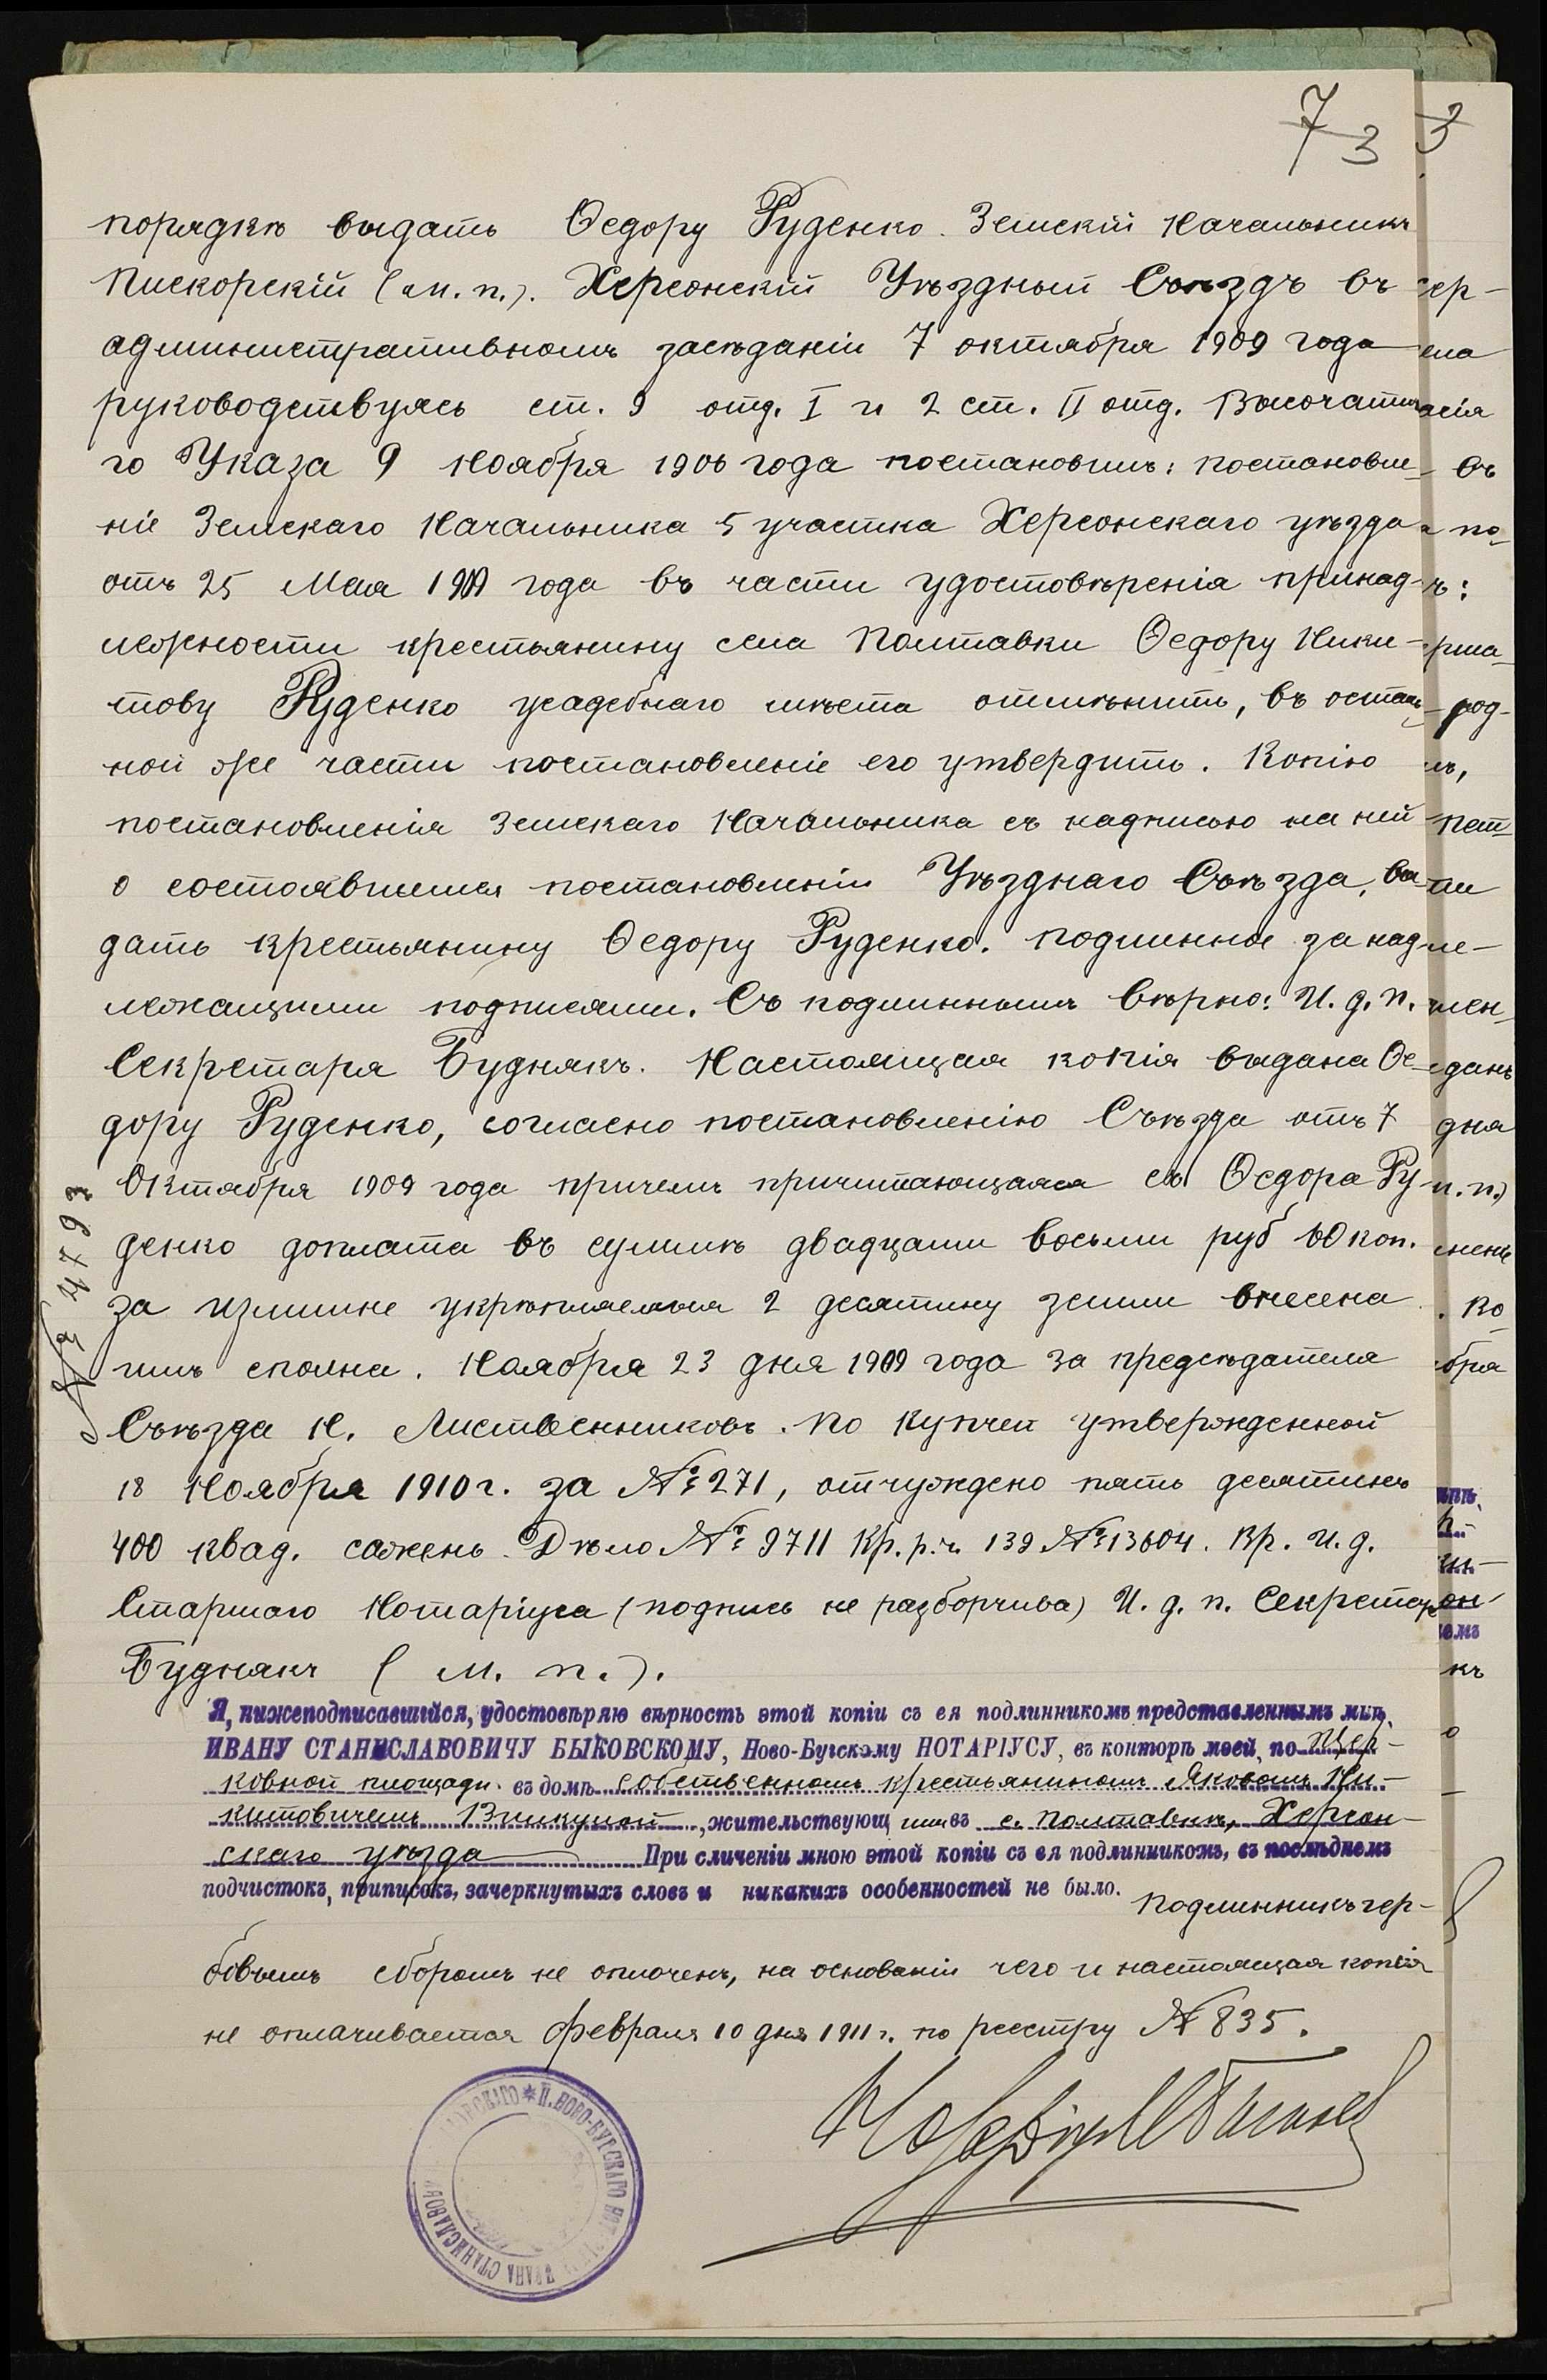 7 3 3
порядкѣ выдать Ѳедору Руденко. Земскій Начальникъ
Пискорскій (м. п.). Херсонскій Уѣздный Съѣздъ въ
административномъ засѣданіи 7 октября 1909 года
руководствуясь ст. 9 отд. I и 2 ст. II отд. Высочайша
го Указа 9 Ноября 1906 года постановилъ: постановле-
ніе Земскаго Начальника 5 участка Херсонскаго уѣзда
отъ 25 Мая 1909 года въ части удостовѣренія принад-
лежности крестьянину села Полтавки Ѳедору Ники-
тову Руденко усадебнаго мѣста отмѣнить, въ осталь-
ной же части постановленіе его утвердить. Копію
постановленія Земскаго Начальника съ надписью на ней
о состоявшемся постановленіи Уѣзднаго Съѣзда, вы-
дать крестьянину Ѳедору Руденко. Подлинное за над-
лежащими подписями. Съ подлиннымъ вѣрно: И. д. п.
Секретаря Буднякъ. Настоящая копія выдана Ѳе-
дору Руденко, согласно постановленію Съѣзда отъ 7
Октября 1909 года причемъ причитающаяся съ Ѳедора Ру-
денко доплата въ суммѣ двадцати восьми руб 80 коп.
за излишне укрѣпляемыя 2 десятину земли внесена
имъ сполна. Ноября 23 дня 1909 года За предсѣдателя
Съѣзда Н. Лиственниковъ. По купчей утвержденной
18 Ноября 1910 г. за № 271, отчуждено пять десятинъ
400 квад. сажень. Дѣло № 9711 Кр. р. ч. 139 № 13604. Вр. И. д.
Старшаго Нотаріуса (подпись не разборчива) И. д. п. Секретаря
Буднякъ (м. п.).
№ 4793
Я, нижеподписавшійся, удостовѣряю вѣрность этой копіи съ ея подлинникомъ представленнымъ мнѣ,
ИВАНУ СТАНИСЛАВОВИЧУ БЫКОВСКОМУ, Ново-Бугскому НОТАРІУСУ, въ конторѣ моей, по Цер-
ковной площади въ домѣ собственномъ крестьяниномъ Яковомъ Ни-
китовичемъ Викулой, жительствующимъ въ с. Полтавкѣ, Херсон-
скаго уѣзда При сличеніи мною этой копіи съ ея подлинникомъ, въ послѣднемъ
подчистокъ, приписокъ, зачеркнутыхъ словъ и никакихъ особенностей не было. Подлинникъ гер-
бовымъ сборомъ не оплоченъ, на основаніи чего и настоящая копія
не оплачивается февраля 10 дня 1911 г. по реестру № 835.
Н. НОВО-БУГСКАГО ИВАНА СТАНИСЛАВОВИ